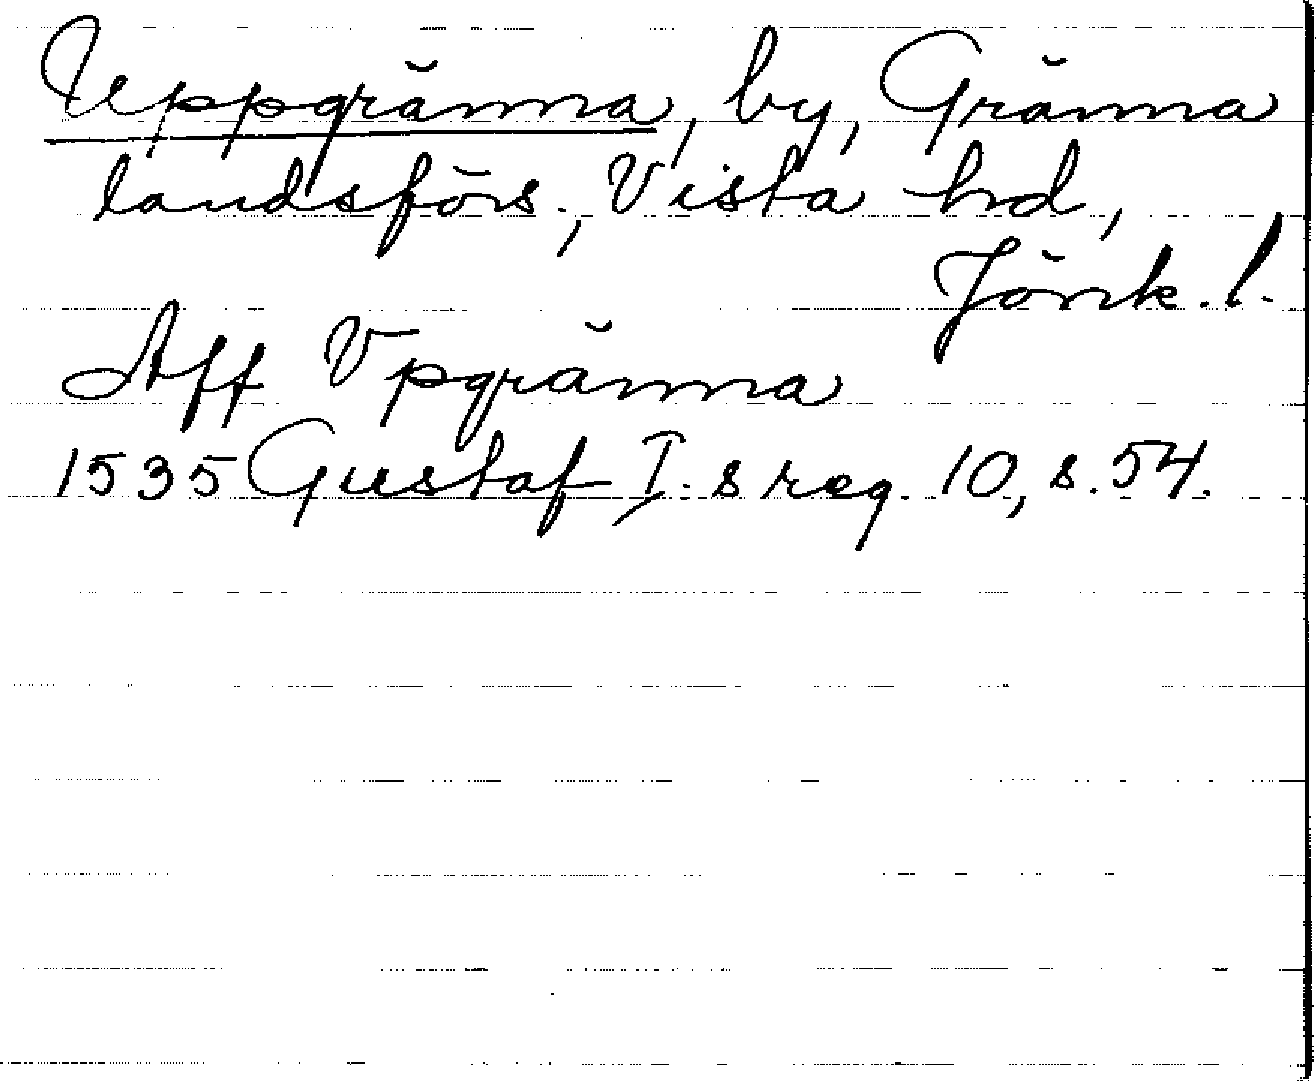 Uppgränna, by, Gränna
landsförs., Vista hd,
Jönk. l.
Aff Vpgränna
1535 Gustaf I.s reg. 10, s. 54.